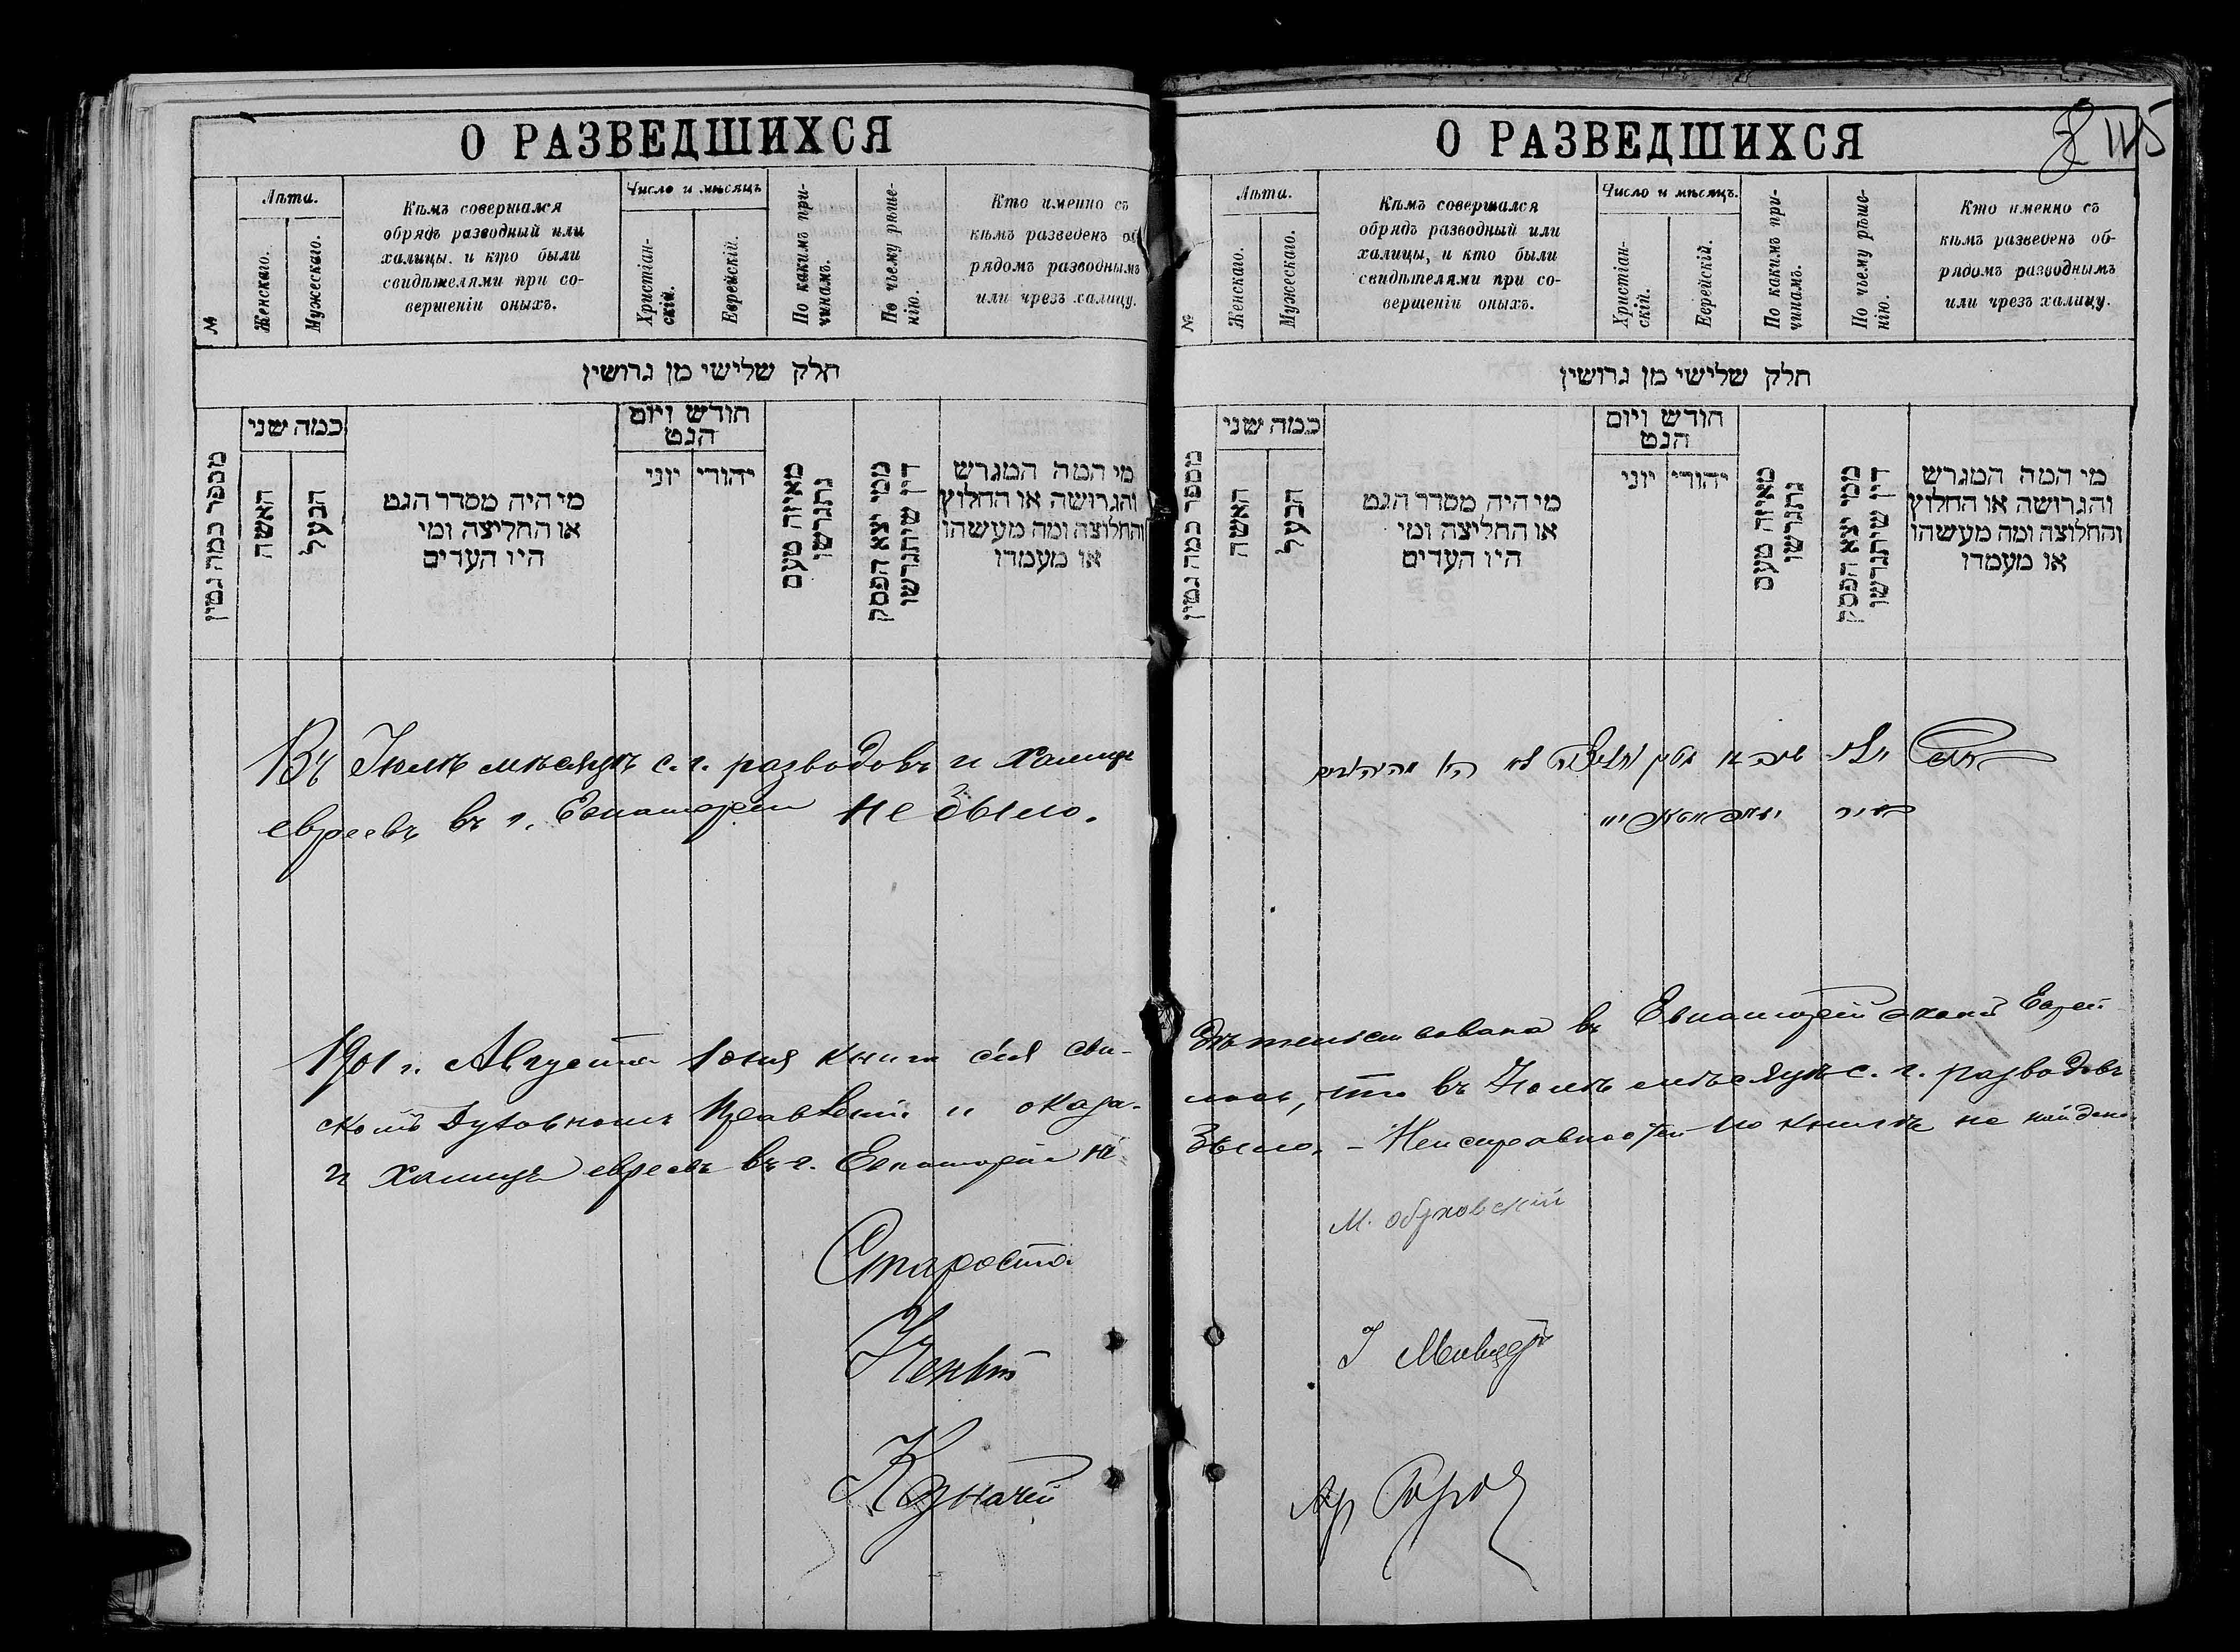 О РАЗВЕДШИХСЯ
№
Лѣта.
Женскаго.
Мужескаго.
Кѣмъ совершался
обрядъ разводный или
халицы. и кто были
свидѣтелями при со-
вершеніи оныхъ.
Число и мѣсяцъ
Христіан-
скій.
Еврейскій.
По какимъ при-
чинамъ.
По чьему рѣше-
нію.
Кто именно съ
кѣмъ разведенъ об
рядомъ разводнымъ
или чрезъ халицу.
חלק שלישי מן גרושין
מספר כמה גטין
כמה שני
האשה
הבעל
מי היה מסדר הגט
או החליצה ומי
היו העדים
חודש ויום
הגט
יהודי
יוני
מאיזה טעם
נתגרשו
ממי יצא הפסק
דין שיתגרשו
מי המה המגרש
והגרושה או החלוץ
והחלוצה ומה מעשהו
או מעמדו
Въ Іюлѣ мѣсяцѣ с. г. разводовъ и халицъ
евреевъ въ г. Евпаторіи не было.
1901 г. Августа 1 дня книга сія сви-
скомъ Духовномъ Правленіи и оказа-
и халицъ евреевъ въ г. Евпаторіи не
Староста
Казначей
О РАЗВЕДШИХСЯ
115
№
Лѣта.
Женскаго.
Мужескаго.
Кѣмъ совершался
обрядъ разводный или
халицы, и кто были
свидѣтелями при со-
вершеніи оныхъ.
Число и мѣсяцъ.
Христіан-
скій.
Еврейскій.
По какимъ при-
чинамъ.
По чьему рѣше-
нію.
Кто именно съ
кѣмъ разведенъ об-
рядомъ разводнымъ
или чрезъ халицу.
חלק שלישי מן גרושין
מספר כמה גטין
כמה שני
האשה
הבעל
מי היה מסדר הגט
או החליצה ומי
היו העדים
חודש ויום
הגט
יהודי
יוני
מאיזה טעם
נתגרשו
ממי יצא הפסק
דין שיתגרשו
מי המה המגרש
והגרושה או החלוץ
והחלוצה ומה מעשהו
או מעמדו
дѣтельствована въ Евпаторійской Еврей-
лось, что въ Іюлѣ мѣсяцѣ с. г. разводовъ
было. – Неисправностей по книгѣ не найдено
М. Обуховскій